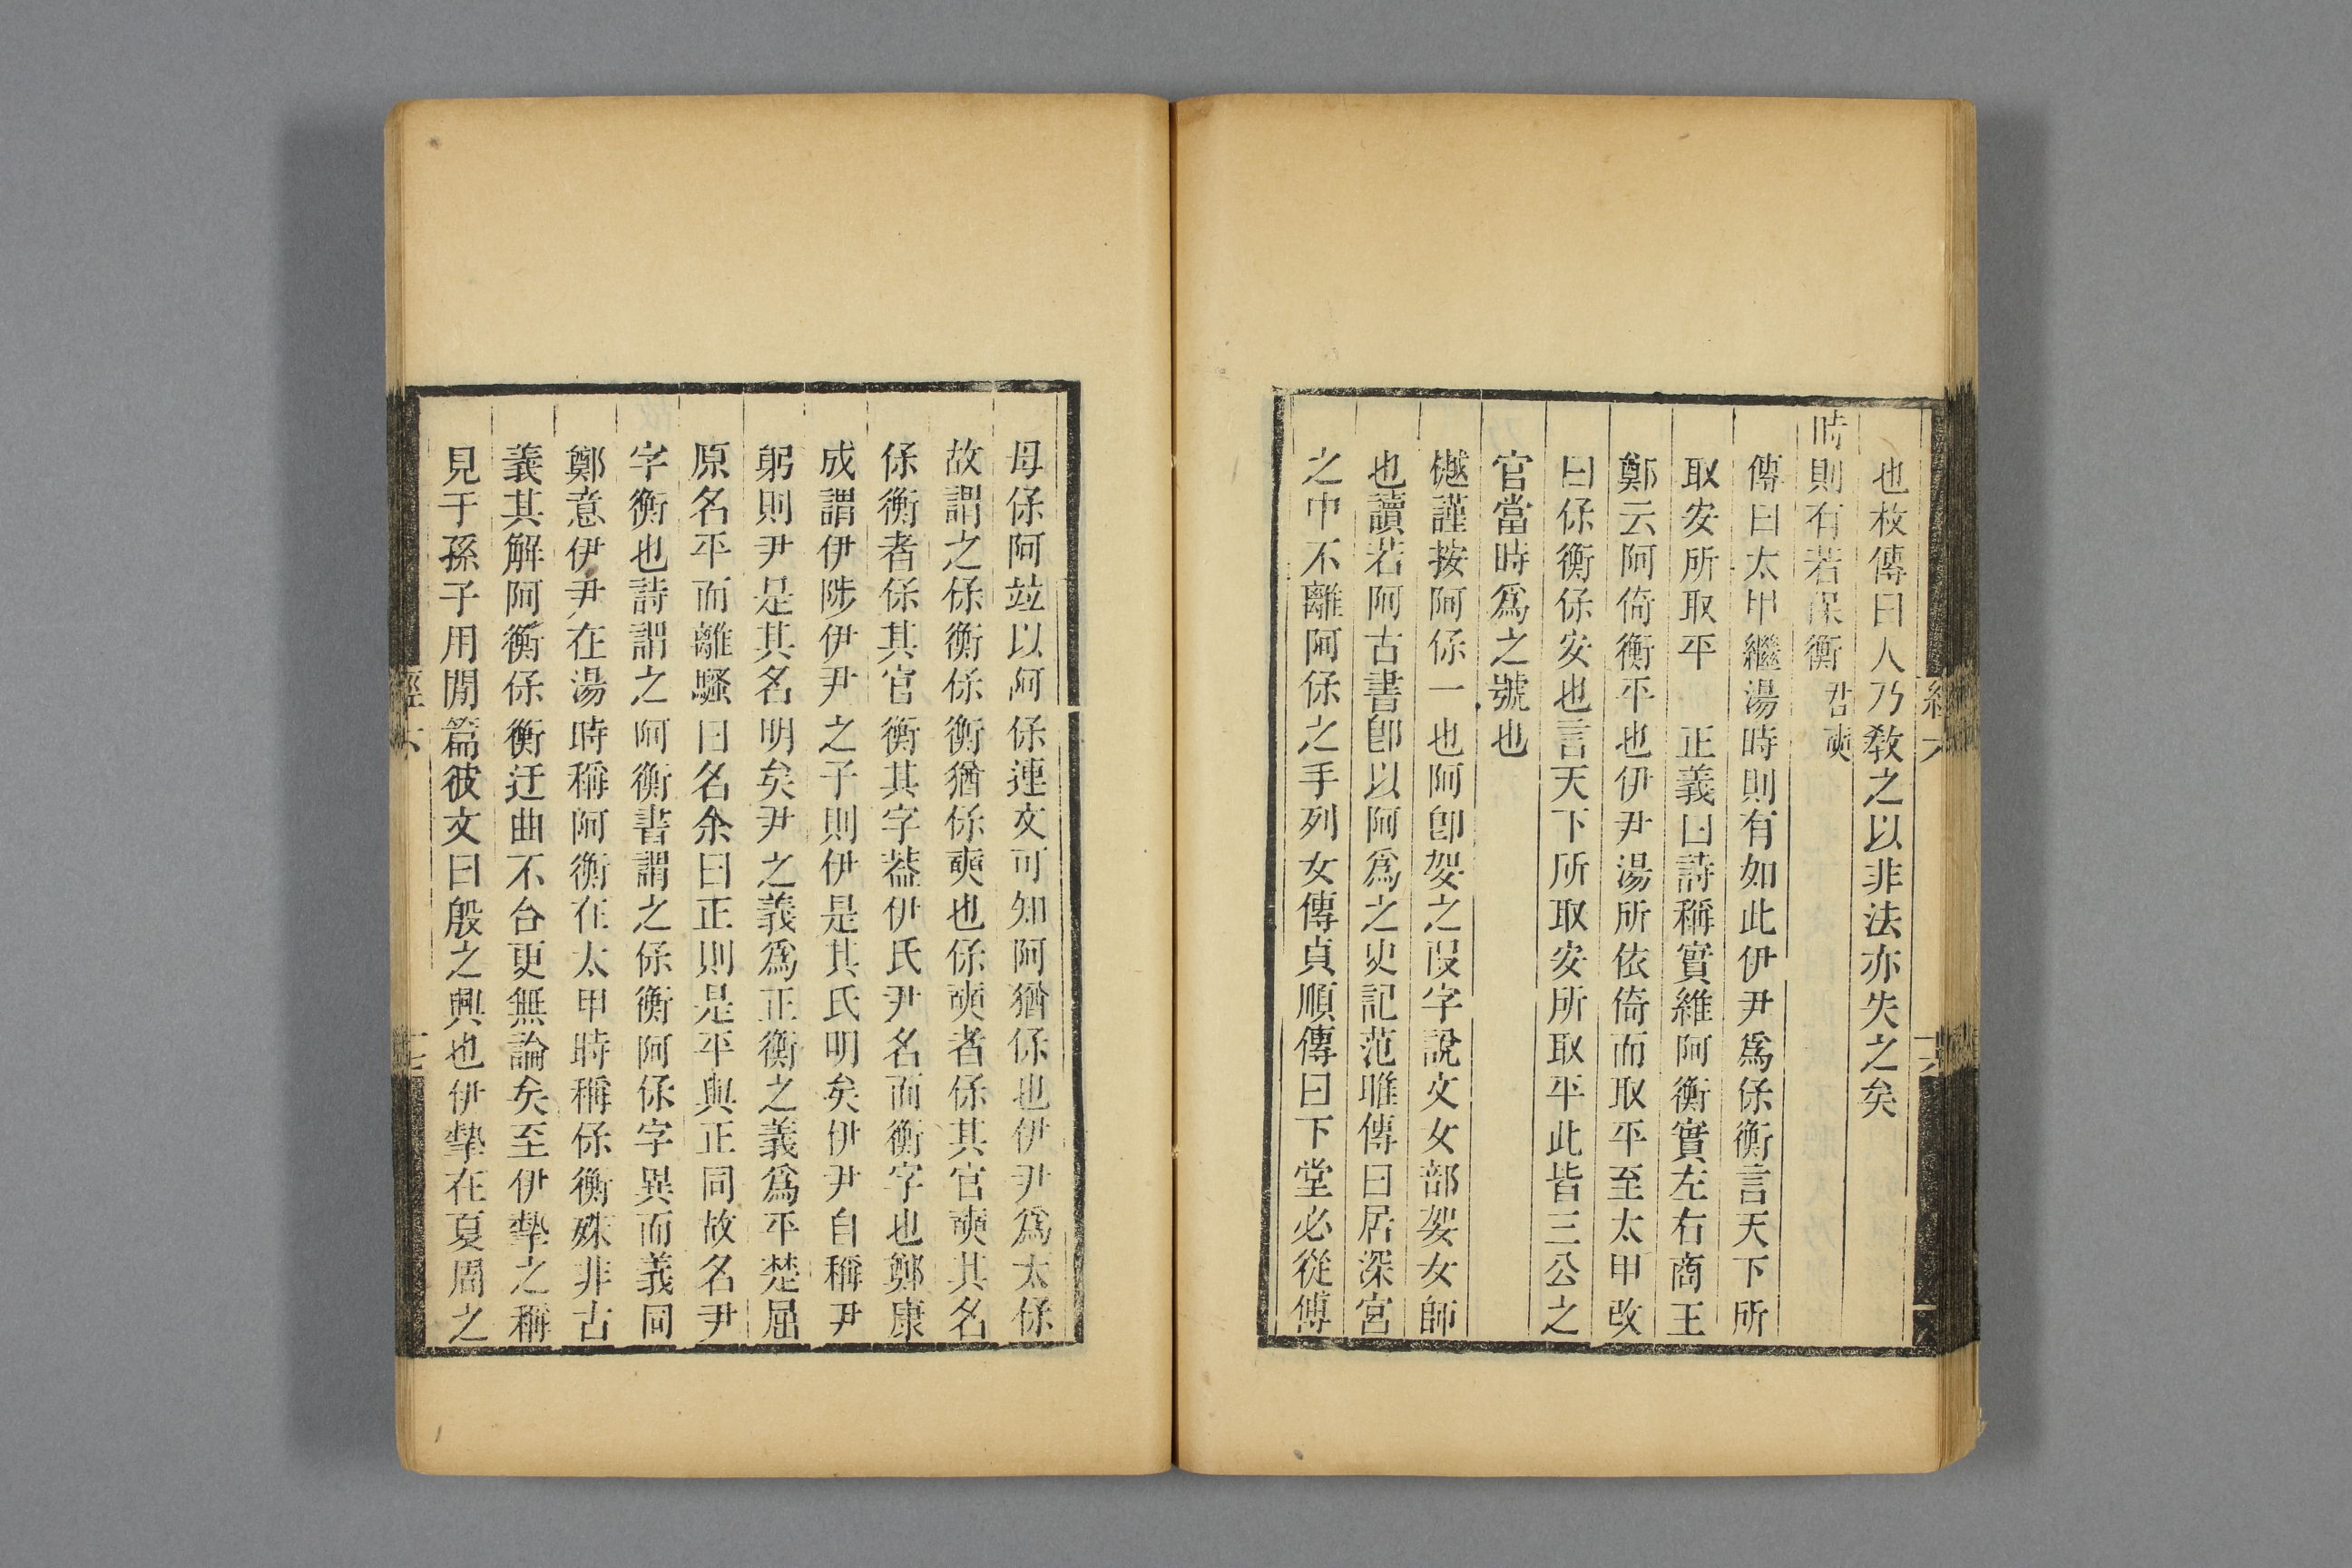 也枚傳曰人乃敎之以非法亦失之矣
時則有若保衡君奭
傳曰太甲繼湯時則有如此伊尹爲保衡言天下所
取安所取平　正義曰詩稱實維阿衡實左右商王
鄭云阿倚衡平也伊尹湯所依倚而取平至太甲改
曰保衡保安也言天下所取安所取平此皆三公之
官當時爲之號也
樾謹按阿保一也阿卽妿之叚字說文女部妿女師
也讀若阿古書卽以阿爲之史記范雎傳曰居深宮
之中不離阿保之手列女傳貞順傳曰下堂必從傅
母保阿竝以阿保連文可知阿猶保也伊尹爲太保
故謂之保衡保衡猶保奭也保奭者保其官奭其名
保衡者保其官衡其字葢伊氏尹名而衡字也鄭康
成謂伊陟伊尹之子則伊是其氏明矣伊尹自稱尹
躬則尹是其名明矣尹之義爲正衡之義爲平楚屈
原名平而離騷曰名余曰正則是平與正同故名尹
字衡也詩謂之阿衡書謂之保衡阿保字異而義同
鄭意伊尹在湯時稱阿衡在太甲時稱保衡殊非古
義其解阿衡保衡迂曲不合更無論矣至伊摯之稱
見于孫子用閒篇彼文曰殷之興也伊摯在夏周之